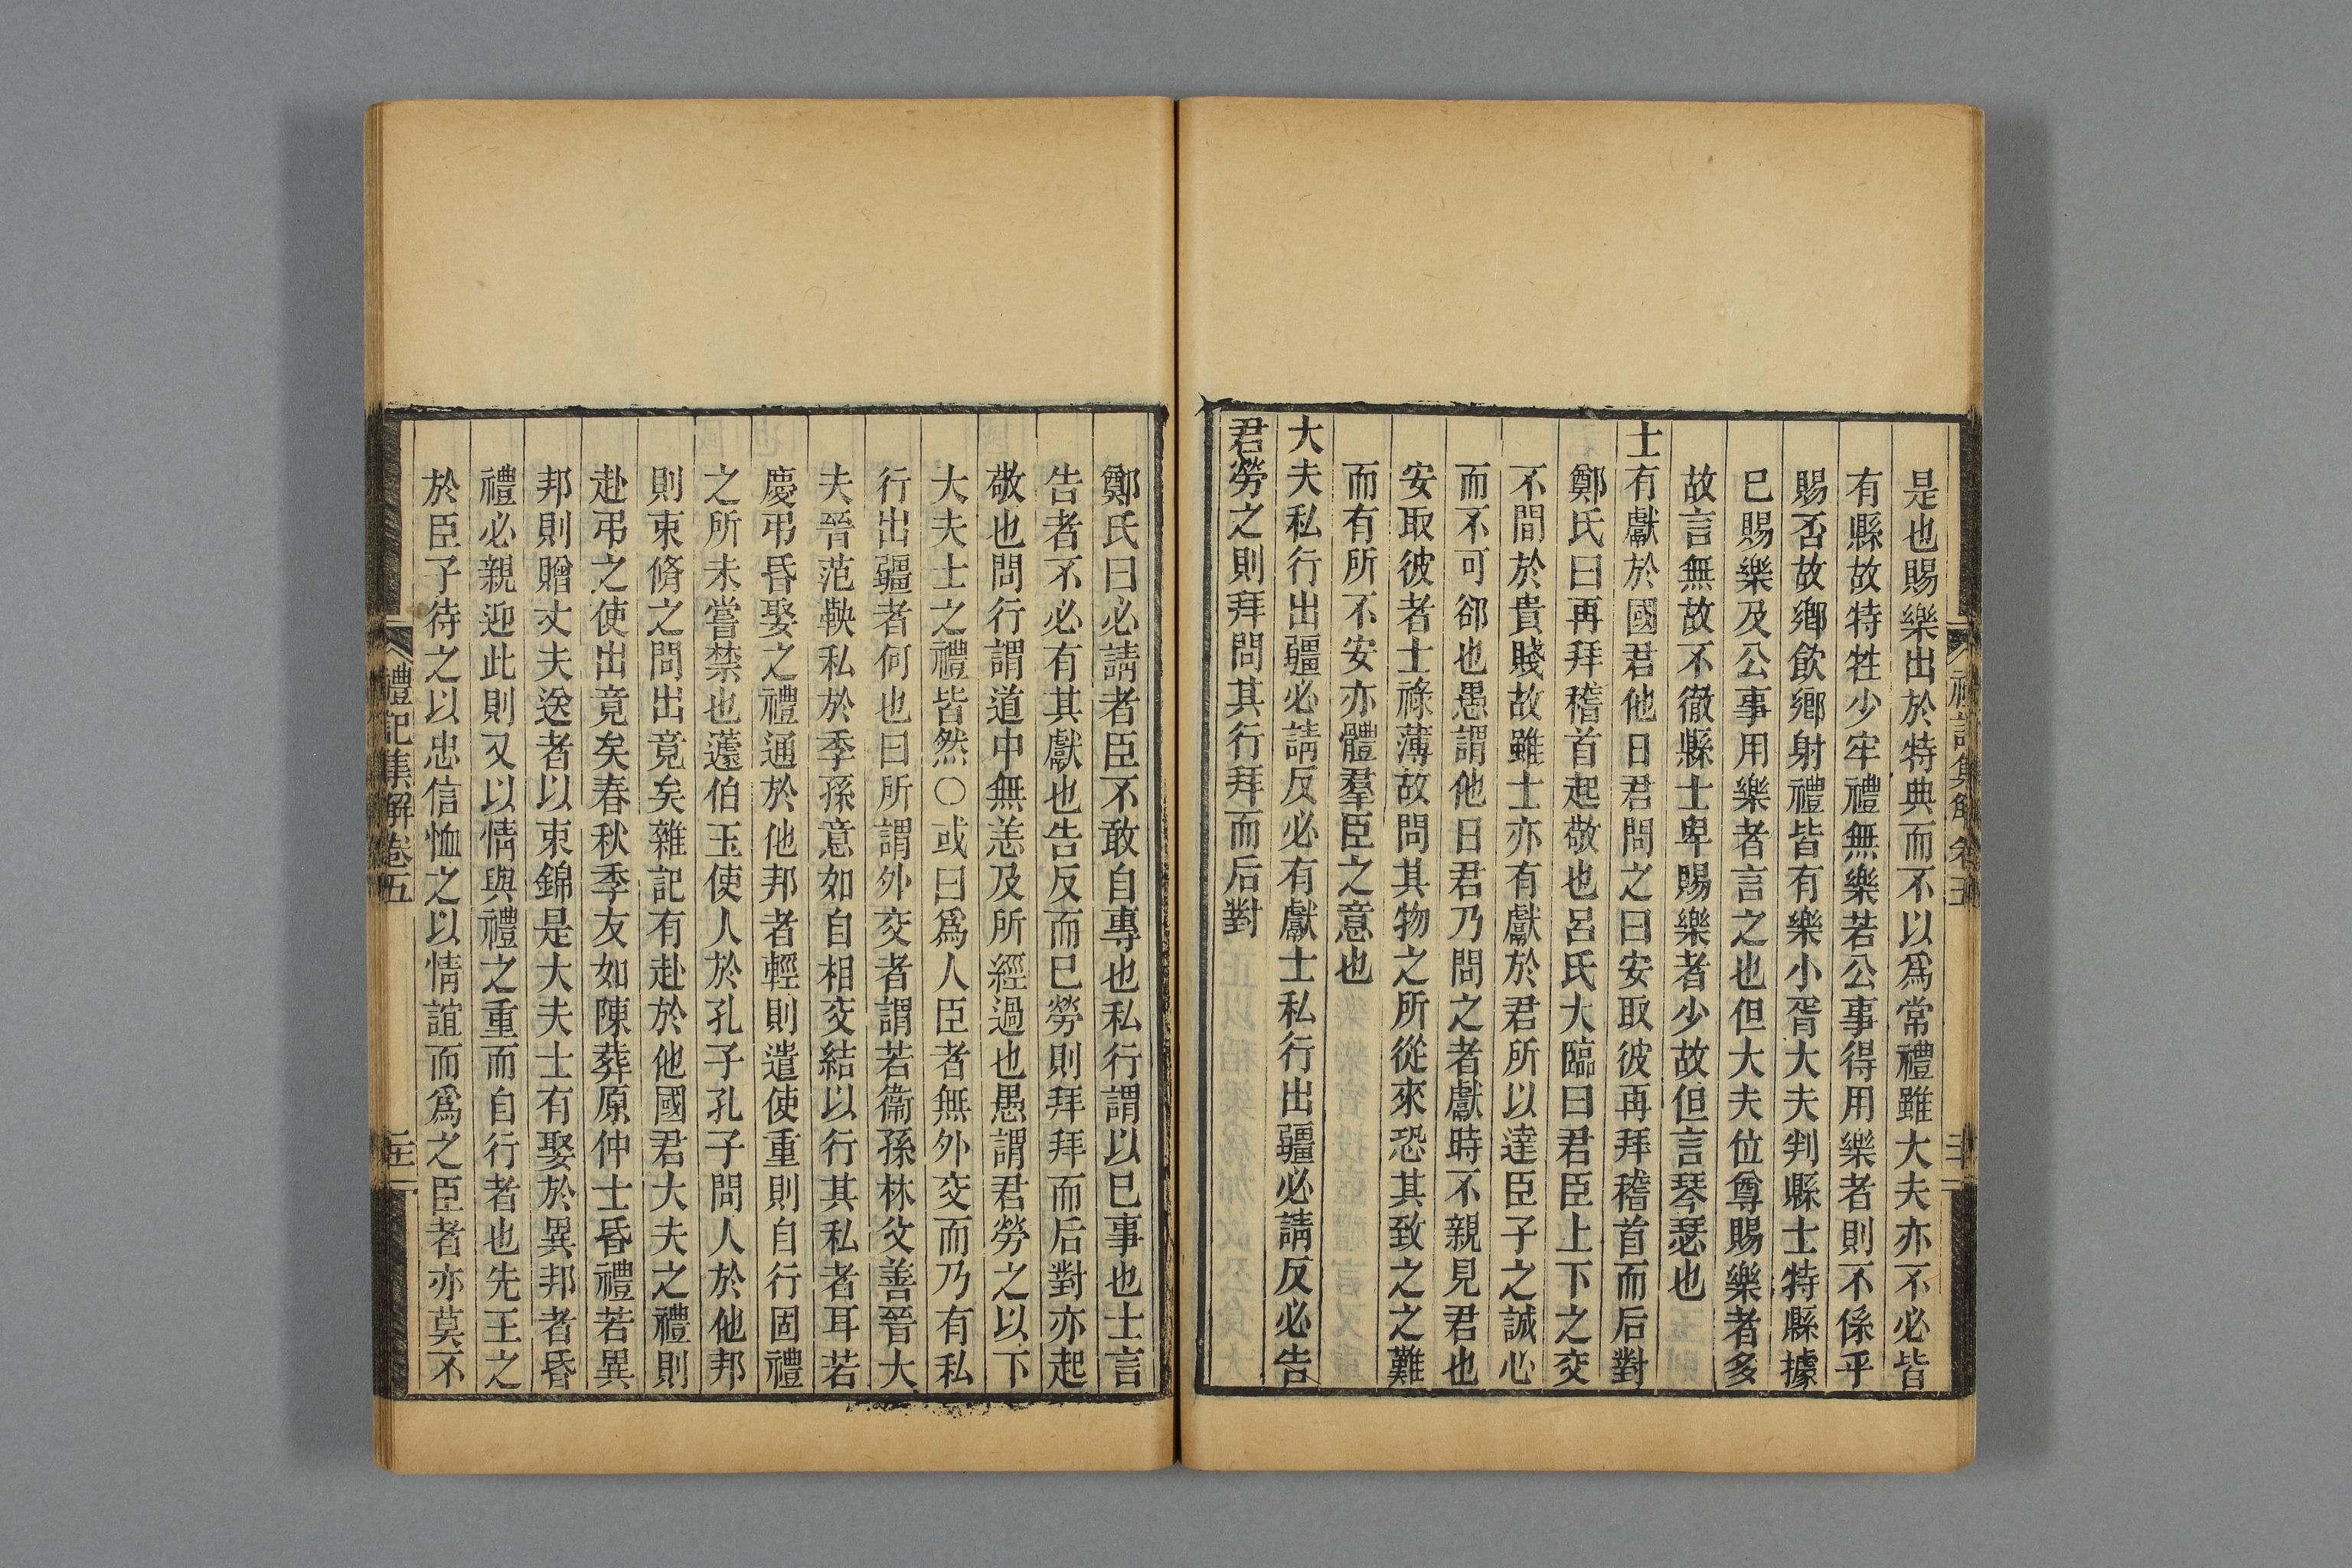 是也賜樂出於特典而不以爲常禮雖大夫亦不必皆
有縣故特牲少牢禮無樂若公事得用樂者則不係乎
賜否故鄉飲鄉射禮皆有樂小胥大夫判縣士特縣據
巳賜樂及公事用樂者言之也但大夫位尊賜樂者多
故言無故不徹縣士卑賜樂者少故但言琴瑟也
士有獻於國君他日君問之曰安取彼再拜稽首而后對
鄭氏曰再拜稽首起敬也呂氏大臨曰君臣上下之交
不間於貴賤故雖士亦有獻於君所以達臣子之誠心
而不可卻也愚謂他日君乃問之者獻時不親見君也
安取彼者士祿薄故問其物之所從來恐其致之之難
而有所不安亦體羣臣之意也
大夫私行出疆必請反必有獻士私行出疆必請反必告
君勞之則拜問其行拜而后對
鄭氏曰必請者臣不敢自專也私行謂以巳事也士言
告者不必有其獻也告反而巳勞則拜拜而后對亦起
敬也問行謂道中無恙及所經過也愚謂君勞之以下
大夫士之禮皆然○或曰爲人臣者無外交而乃有私
行出疆者何也曰所謂外交者謂若衞孫林父善晉大
夫晉范鞅私於季孫意如自相交結以行其私者耳若
慶弔昏娶之禮通於他邦者輕則遣使重則自行固禮
之所未嘗禁也蘧伯玉使人於孔子孔子問人於他邦
則束脩之問出竟矣雜記有赴於他國君大夫之禮則
赴弔之使出竟矣春秋季友如陳葬原仲士昏禮若異
邦則贈丈夫送者以束錦是大夫士有娶於異邦者昏
禮必親迎此則又以情與禮之重而自行者也先王之
於臣子待之以忠信恤之以情誼而爲之臣者亦莫不
禮記集解卷五